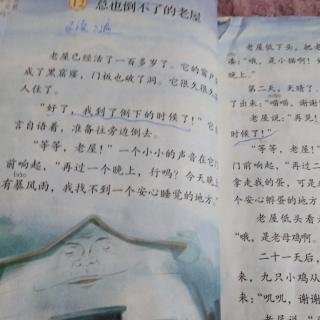 12 总也倒不了的老屋
老屋已经活了一百多岁了。它的窗户
成了黑窟窿，门板也破了洞。它很久很久
人住了。
“好了，我到了倒下的时候了！”它
言自语着，准备往旁边倒去。
“等等，老屋！”一个小小的声音在它
前响起，“再过一个晚上，行吗？今天晚
bào
有暴风雨，我找不到一个安心睡觉的地方
老屋低下头，把老
凑：“哦，是小猫啊！
晚上。”
第二天，天晴了，
了出来：“喵喵，谢谢
老屋说：“再见！
时候了！”
“等等，老屋！
门前响起，“再过二
拿走我的蛋，可是
个安心孵蛋的地方
老屋低头看
“哦，是老母鸡啊。
二十一天后，
来，九只小鸡从
来，“叽叽，谢谢
老屋说：“